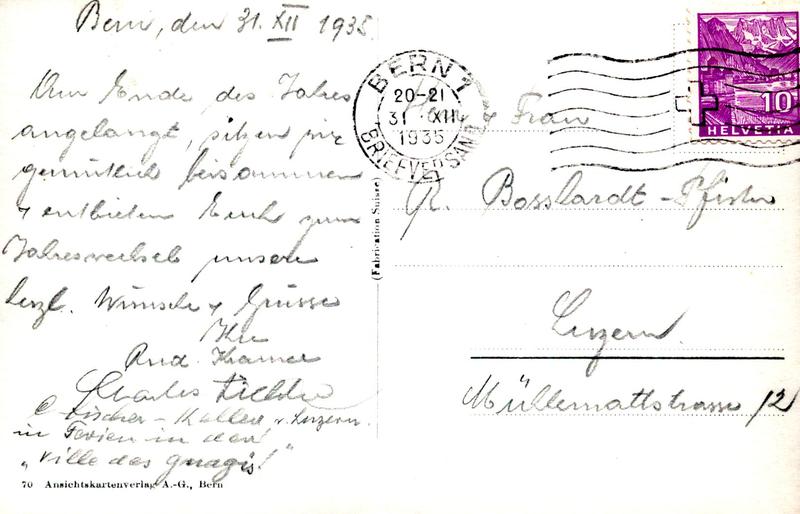 Bern, den 31. XII 1935
Am Ende des Jahres
angelangt, sitzen wir
gemütlich beisammen
& entbieten Euch zum
Jahreswechsel unsere
herzl. Wünsche & Grüsse
Ihre
Rud. Kramer
Charles
Fischer - v. Luzern.
in Ferien in der
"Ville des gnagis!"
70 Ansichtskartenverlag A.-G., Bern
(Fabrication Suisse)
BERN 1
20-21
31. XII
1935
BRIEFVERSAND
10
HELVETIA
& Frau
R. Bosshardt - Pfister
Luzern.
Müllermattstrasse 12